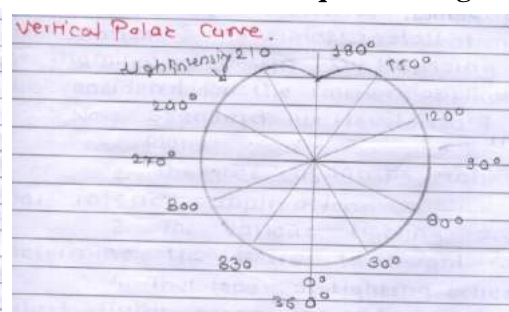 Vertical Polar Curve.
Light intensity 210 180° 150°
200° 120°
270° 90°
300 600
330 30°
0°
360°